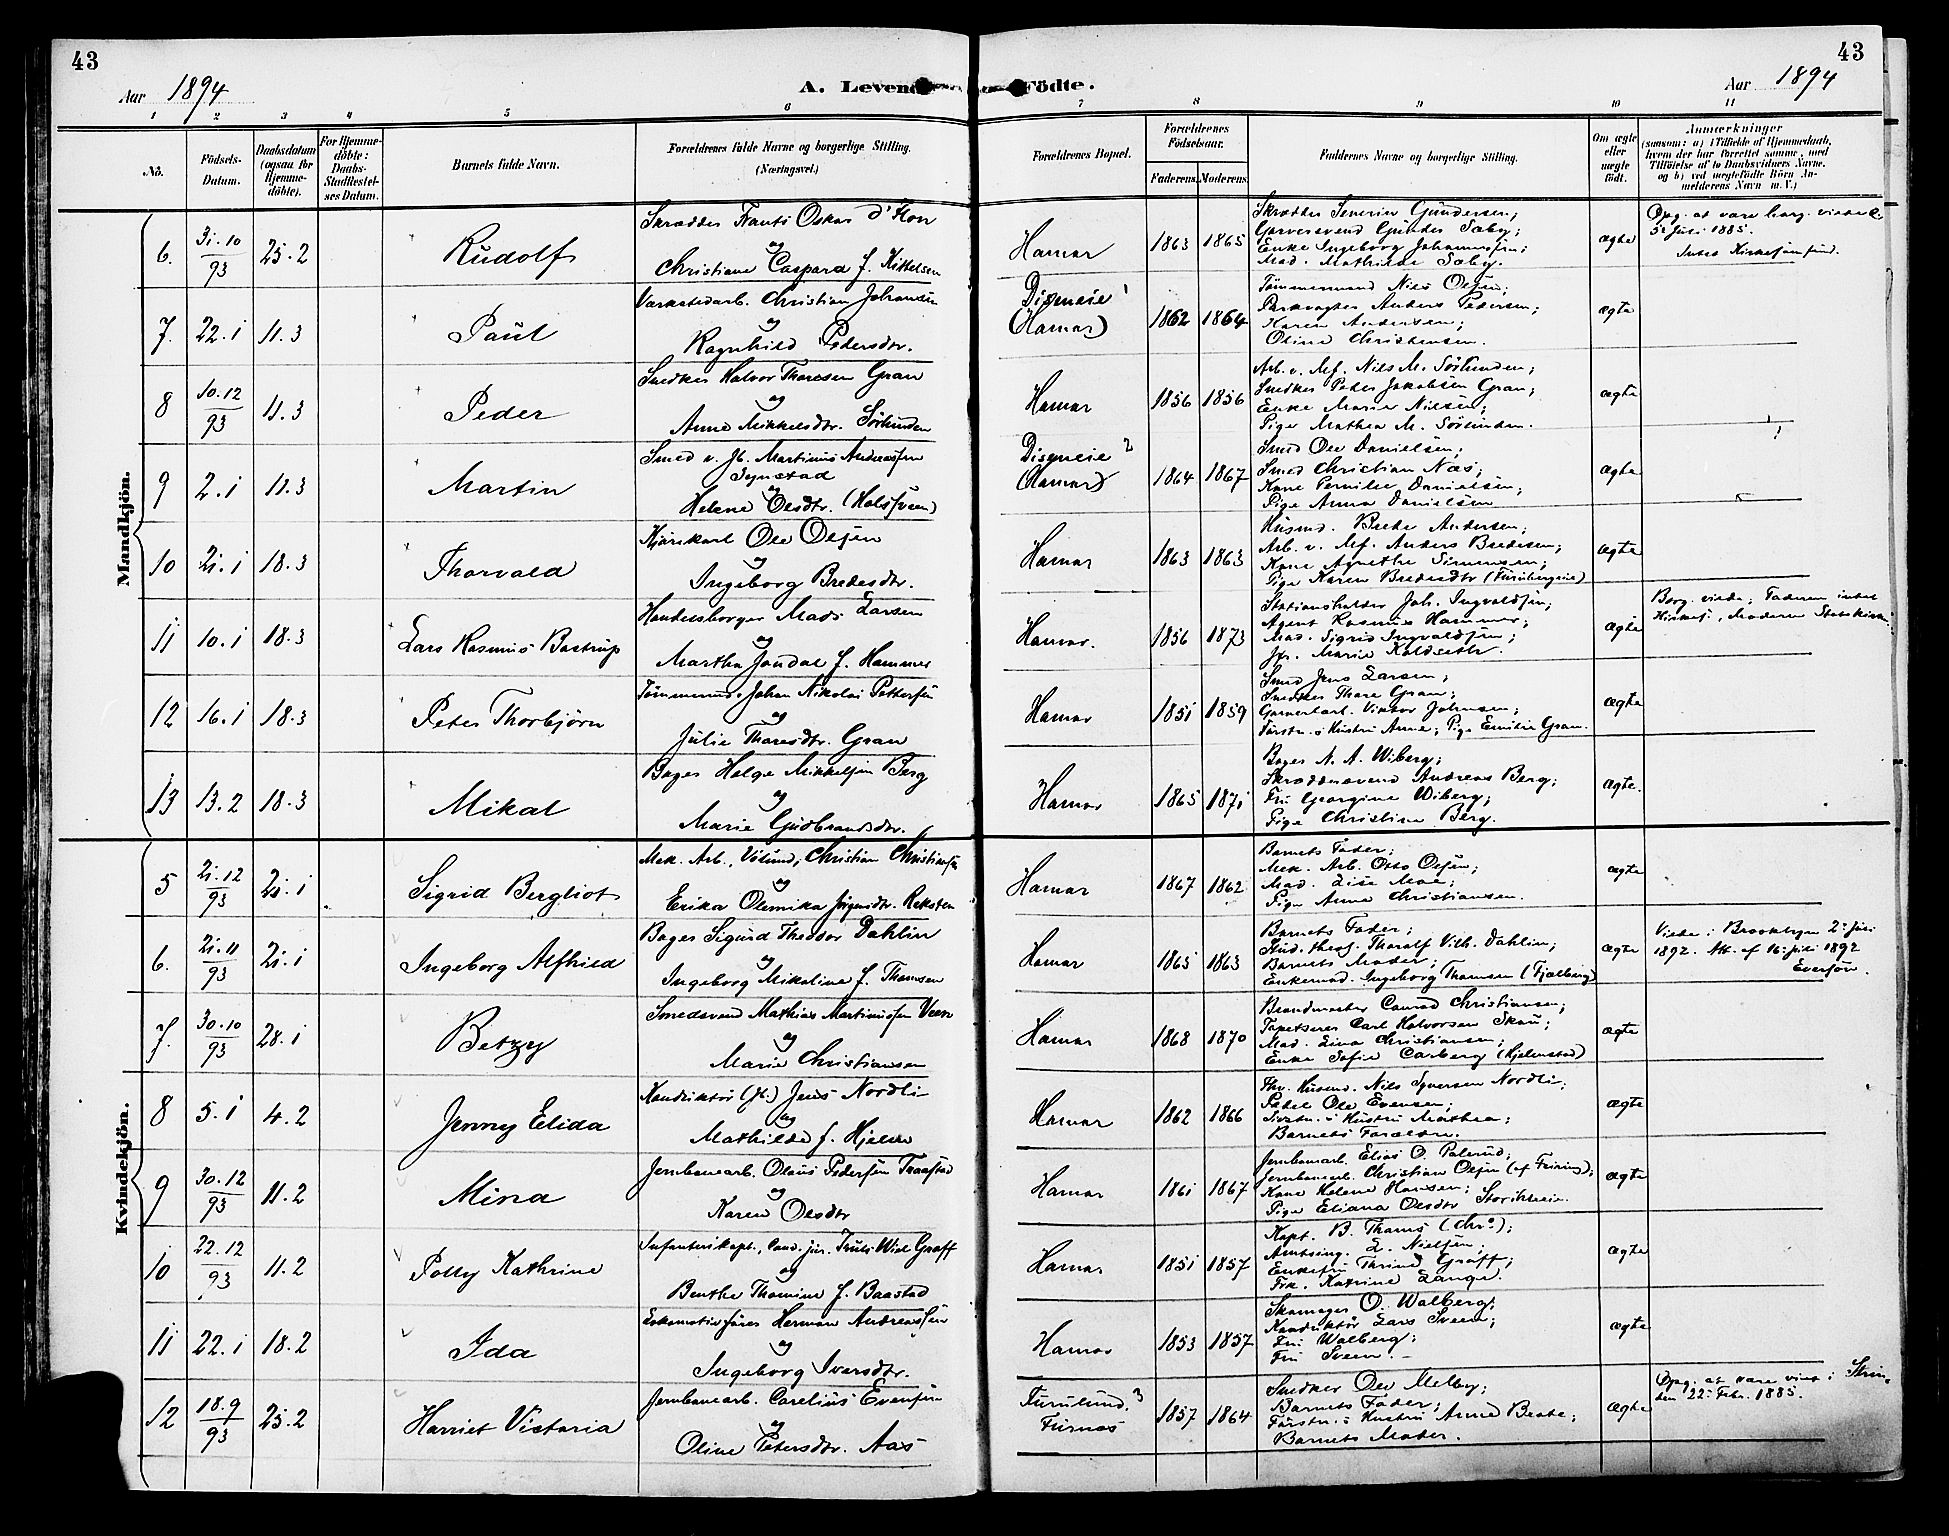 43
43
Aar 1894
A. Levende Födte.
Aar 1894
1 2 3 4 5 6 7 8 9 10 11
No.
Födsels-Datum.
Daabsdatum (ogsaa for Hjemme-döbte).
For Hjemme-döbte: Daabs-Stadfæstel-ses Datum.
Barnets fulde Navn.
Forældrenes fulde Navne og borgerlige Stilling. (Næringsvei.)
Forældrenes Bopæl.
Forældrenes Födselsaar.
Faderens.
Moderens.
Faddernes Navne og borgerlige Stilling.
Om ægte eller uægte födt.
Anmærkninger
(saasom: a) i Tilfælde af Hjemmedaab, hvem der har forrettet samme, med Tilföielse af to Daabsvidners Navne. og b) ved uægtefödte Börn An-melderens Navn m. V.)
Mandkjön.
6. 31.10/93 25.2 Rudolf
Skrædder Frants Oskar d'Flon
og
Christiane Caspara f. Kittelsen
Hamar 1863 1865
Skrædder Severin Gundersen;
Garversvend Gunder Sæby;
Enke Ingeborg Johannesen;
Mad. Mathilde Sæby.
ægte
Opg. at være borg. viede
5te Juli 1885.
7. 22.1 11.3 Paul
Værkstedarb. Christian Johansen
og
Ragnhild Pedersdtr.
Disgneie 1
(Hamar) 1862 1864
Tømmermand Nils Olsen;
Parkvogter Anders Pedersen;
Karen Andersen;
Oline Christensen.
ægte
8 10.12/93 11.3 Peder
Snedker Halvor Thoresen Gran
og
Anne Mikkelsdtr. Sørlunden
Hamar 1856 1856
Arb. v. Mf. Nils M. Sørlunden;
Snedker Peder Jakobsen Gran;
Enke Marie Nielsen;
Pige Mathea M. Sørlunden.
ægte
9 2.1 11.3 Martin
Smed v. Jb. Martinus Andreassen
og
Helene Olsdtr.
Disgneie 2
(Hamar) 1864 1867
Smed Ole Danielsen;
Smed Christian Næs;
Kone Pernille Danielsen;
Pige Anna Danielsen
ægte
10 21.1 18.3 Thorvald
Kjørekarl Ole Olsen
og
Ingeborg Bredesdtr.
Hamar 1863 1863
Husmd. Brede Andersen;
Arb. v. Mf. Anders Bredesen;
Kone Agnethe Simensen;
Pige Karen Bredesdtr
ægte
11 10.1 18.3 Lars Rasmus Bastrup
Handelsborger Mads Larsen
og
Martha Jondal f. Hammer
Hamar. 1856 1873
Stationsholder Joh. Ingvaldsen;
Agent Rasmus Hammer;
Mad. Sigrid Ingvaldsen;
Jfr. Marie Koldseth.
ægte
Borg. viede; Faderen intet
Kirkes., Moderen Statskirken
12 16.1 18.3 Peter Thorbjørn
Tømmermd. Johan Nikolai Pettersen
og
Julie Thoresdtr. Gran
Hamar 1851 1859
Smed Jens Larsen;
Snedker Thore Gran;
Garveriarb. Viktor Johnsen;
Førstn.s Hustru Anne; Pige Emilie Gran.
ægte
13 13.2 18.3 Mikal
Bager Helge Mikkelsen Berg
og
Marie Gudbrandsdtr.
Hamar 1865 1871
Bager N. A. Wiberg;
Skræddersvend Andreas Berg;
Fru Georgine Wiberg;
Pige Christine Berg.
ægte.
Kvindekjön.
5 21.12/93 21.1 Sigrid Bergliot
Mek. Arb., Christian Christiansen
og
Erika Olemika Jørgensdtr. Reksten
Hamar 1867 1862
Barnets Fader;
Mek. Arb. Otto Olsen;
Mad. Lise Moe;
Pige Anna Christiansen.
ægte
6. 21.11/93 21.1 Ingeborg Alfhild
Bager Sigurd Theodor Dahlin
og
Ingeborg Mikaline f. Thomsen
Hamar 1865 1863
Barnets Fader;
Stud. theol. Tharalf Vilh. Dahlin;
Barnets Moder;
Enkemad. Ingeborg Thomsen
ægte
Viede i Brooklyn 2. Juli
1892. Att. af 16. Juli 1892
7. 30.10/93 28.1 Betzy
Smedsvend Mathias Martinussen Veen
og
Marie Christiansen
Hamar 1868 1870
Brandmester Conrad Christiansen;
Tapetserer Carl Halvorsen Skau;
Mad. Lina Christiansen;
Enke Sofie Carberg (Hjelmstad)
ægte
8 5.1 4.2 Jenny Elida
Konduktør (Jb.) Jens Nordli
og
Mathilde f. Hjelm
Hamar 1862 1866
Fhv. Husmd. Nils Syversen Nordli;
Ole Evensen;
Sidstn.s Hustru Mathea;
Barnets Forældre.
ægte
9 30.12/93 11.2 Mina
Jernbanearb. Olaus Pedersen Traastad
og
Karen Olsdtr
Hamar 1861 1867
Jernbanearb. Elias O. Palerud;
Jernbanearb. Christian Olsen;
Kone Helene Hansen;
Pige Eliana Olsdtr
ægte
10 22.12/93 11.2 Polly Kathrine
Infanterikapt., Cand. jur. Truls Wiel Graff
og
Benthe Thomine f. Baastad
Hamar 1851 1857
Kapt. B. Thams (Chra);
Amtsing. L. Nielsen;
Enkefru Thrine Graff;
Frk. Katrine Lange.
ægte
11 22.1 18.2 Ida
Lokomotivfører Herman Andreassen
og
Ingeborg Iversdtr.
Hamar 1853 1857
Skomager O. Walberg;
Konduktør Lars Sveen;
Fru Walberg;
Fru Sveen.
ægte
12 18.9/93 25.2 Harriet Victoria
Jernbanearb. Carelius Evensen
og
Oline Petersdtr. Aas
Furulund. 3
Furnes 1857 1864
Snedker Ole Melby;
Barnets Fader;
Førstn.s Hustru Anne Beate;
Barnets Moder.
ægte
Opg. at være viet i
den 22. Febr. 1885.